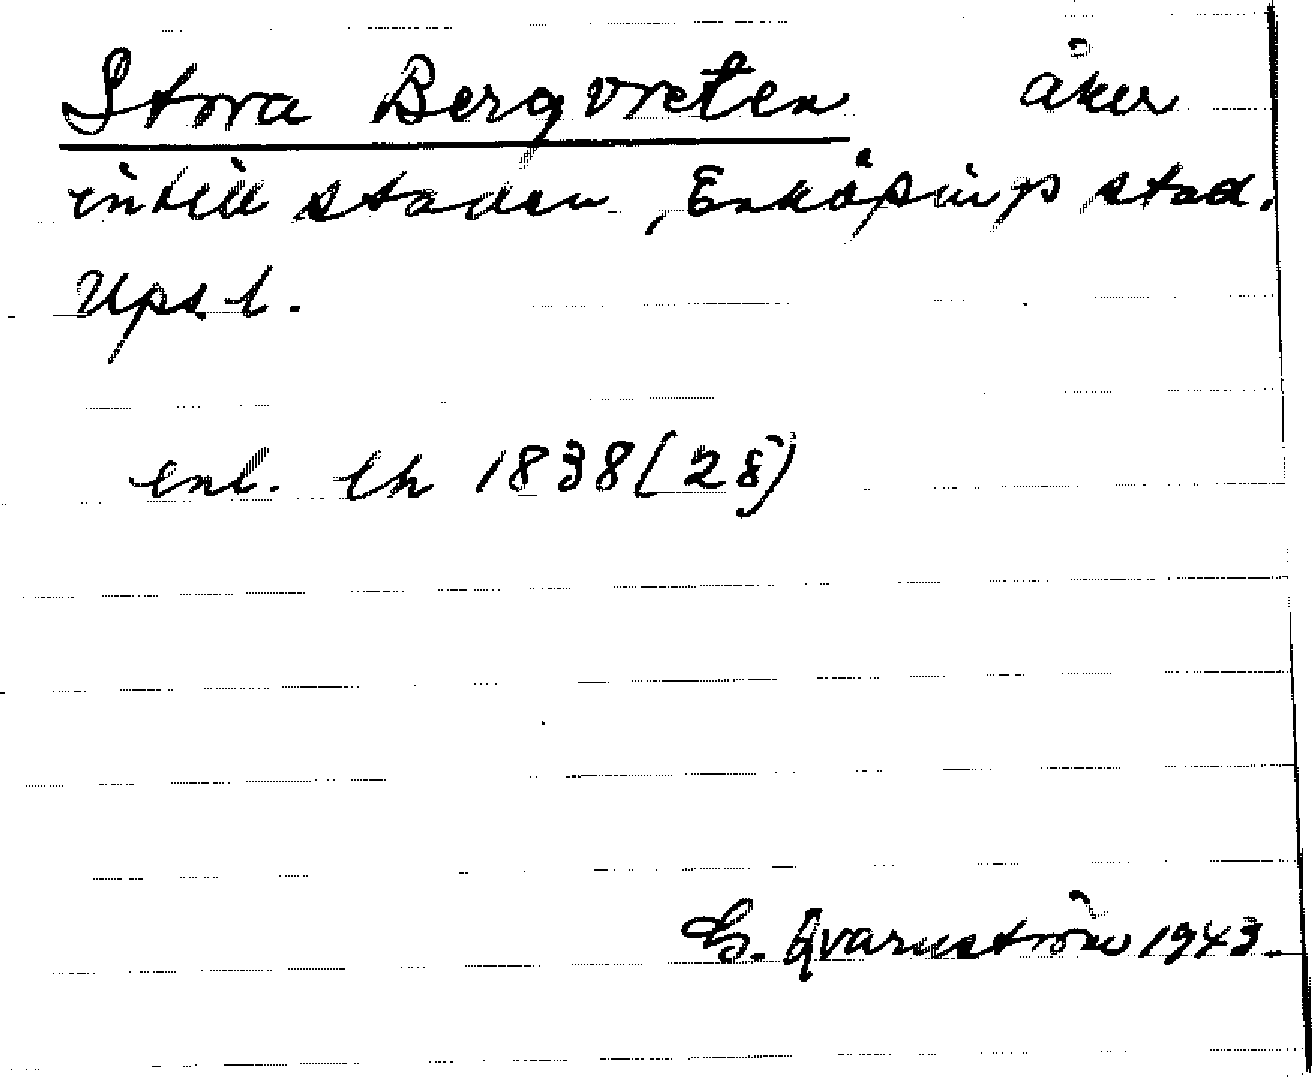 Stora Bergvreten åker
intill staden, Enköpings stad.
Upsl.
enl. lh 1838 (28)
G. Qvarnström 1943.